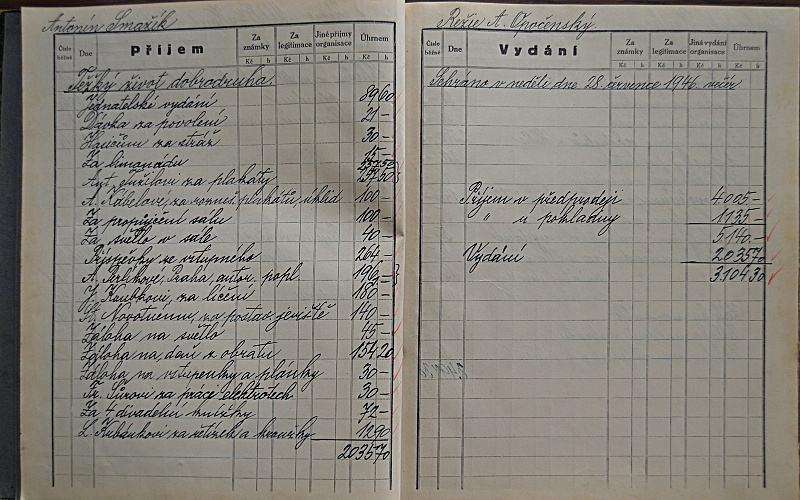 Antonín Smažík
Číslo běžné Dne Příjem Za známky Za legitimace Jiné příjmy organisace Úhrnem
Kč h Kč h Kč h Kč h
Těžký život dobrodruha.
Jednatelské vydání 89 60
Dávka za povolení 21 —
Hasičům za stráž 30 —
Za limonádu 15 —
Ant. za plakáty
A. Kábelové, za roznes. plakátů, úklid 100 —
Za propůjčení sálu 100 —
Za světlo v sále 40 —
Příspěvky ze vstupného 264 —
A. Perlíkové, Praha, autor. popl. 196 —
J. Koubkovi, za líčení 180 —
St. Novotnému, za postav. jeviště 140 —
Záloha na světlo 45 —
Záloha na daň z obratu 154 20
Záloha na vstupenky a plánky 30 —
Fr. Šürovi za práci elektrotech 30 —
Za 4 divadelní knížky 72 —
L. Kubánkovi za řetízek a kroužky 12 90
2035 70
Režie A. Opočenský.
Číslo běžné Dne Vydání Za známky Za legitimace Jiná vydání organisace Úhrnem
Kč h Kč h Kč h Kč h
Sehráno v neděli dne 28. července 1946. večer
Příjem v předprodeji 4005.—
" u pokladny 1135.—
5140.—
Vydání 2035 70
3104 30